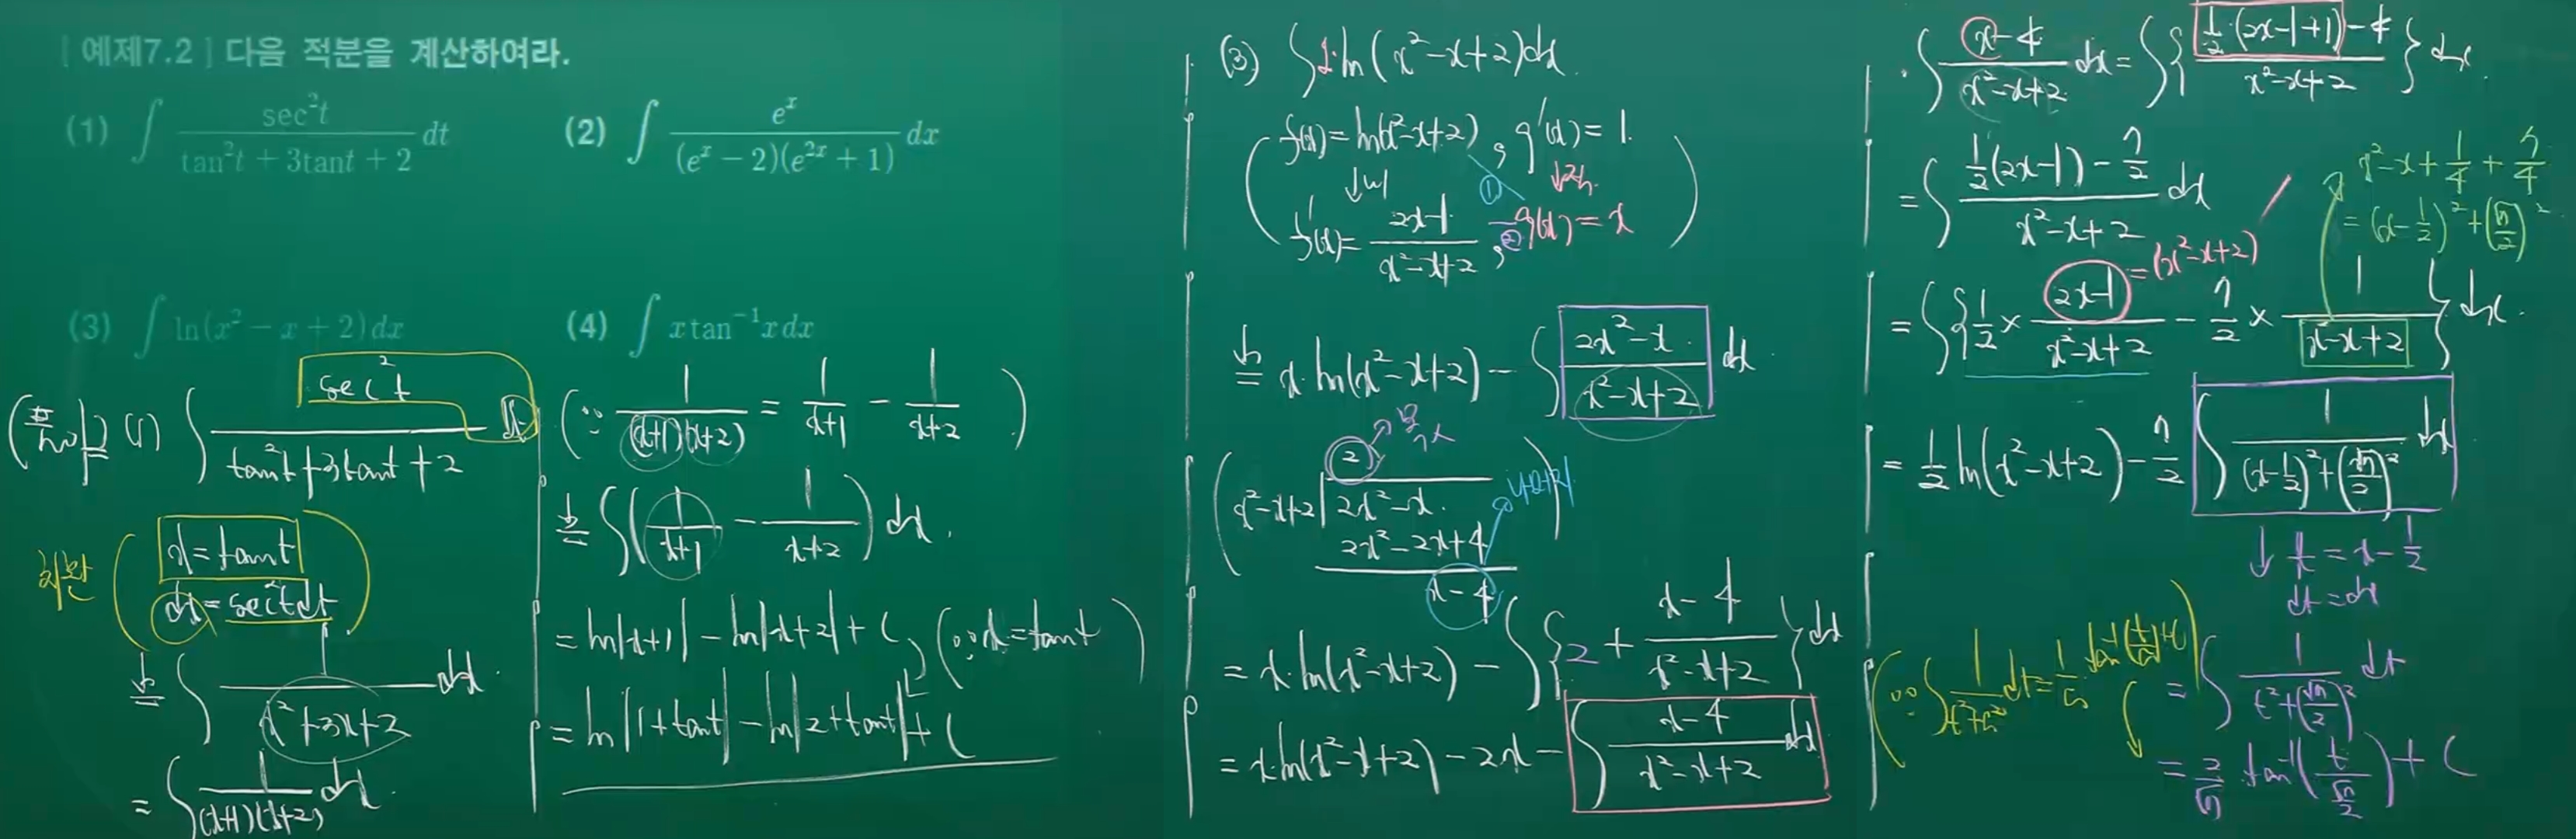 [ 예제7.2 ] 다음 적분을 계산하여라.
(1) ∫ sec²t / (tan²t + 3tant + 2) dt
(2) ∫ eˣ / ((eˣ − 2)(e²ˣ + 1)) dx
(3) ∫ ln(x² − x + 2) dx
(4) ∫ x tan⁻¹x dx
(풀이) (1) ∫ sec²t / (tan²t + 3tant + 2) dt
치환 ( x = tant
dx = sec²t dt )
= ∫ 1 / (x² + 3x + 2) dx
= ∫ 1 / ((x+1)(x+2)) dx
( ∵ 1 / ((x+1)(x+2)) = 1/(x+1) − 1/(x+2) )
= ∫ ( 1/(x+1) − 1/(x+2) ) dx
= ln|x+1| − ln|x+2| + C, (∵ x = tant)
= ln|1+tant| − ln|2+tant| + C
(3) ∫ 1·ln(x² − x + 2) dx
f(x) = ln(x² − x + 2) , g'(x) = 1
↓ ① ↓
f'(x) = (2x−1) / (x² − x + 2) , ② g(x) = x
= x·ln(x² − x + 2) − ∫ (2x² − x) / (x² − x + 2) dx
2
x² − x + 2 | 2x² − x
2x² − 2x + 4
x − 4
= x·ln(x² − x + 2) − ∫ { 2 + (x − 4) / (x² − x + 2) } dx
= x·ln(x² − x + 2) − 2x − ∫ (x − 4) / (x² − x + 2) dx
· ∫ (x − 4) / (x² − x + 2) dx = ∫ { (½·(2x−1+1) − 4) / (x² − x + 2) } dx
= ∫ (½(2x−1) − 7/2) / (x² − x + 2) dx
x² − x + 1/4 + 7/4
= (x − ½)² + (√7/2)²
= ∫ { ½ × (2x−1) / (x² − x + 2) − 7/2 × 1 / (x² − x + 2) } dx
= (x² − x + 2)'
= ½ ln(x² − x + 2) − 7/2 ∫ 1 / ((x − ½)² + (√7/2)²) dx
↓ t = x − ½
dt = dx
( ∵ ∫ 1/(t² + a²) dt = 1/a tan⁻¹(t/a) + C )
= ∫ 1 / (t² + (√7/2)²) dt
= 2/√7 tan⁻¹( t / (√7/2) ) + C